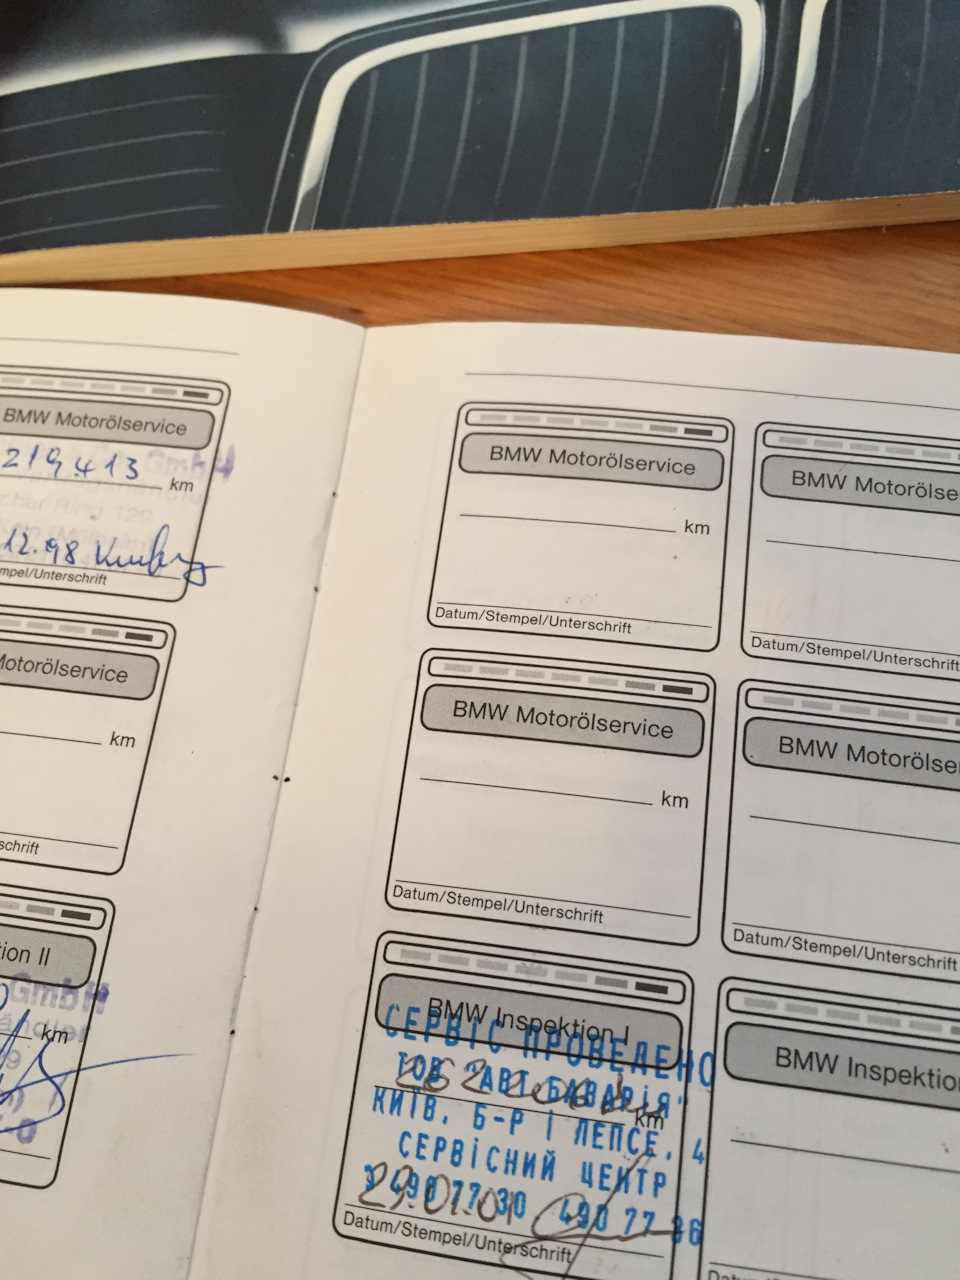 BMW Motorölservice
GmbH
219413 km
cher Ring 129
12.98
mpel/Unterschrift
Motorölservice
km
schrift
tion II
GmbH
händler
km
BMW Motorölservice
km
Datum/Stempel/Unterschrift
BMW Motorölse
Datum/Stempel/Unterschrift
BMW Motorölservice
km
Datum/Stempel/Unterschrift
BMW Motorölse
Datum/Stempel/Unterschrift
BMW Inspektion I
СЕРВІС ПРОВЕДЕНО
ТОВ "АВТ БАВАРІЯ"
km
КИЇВ, Б-Р І ЛЕПСЕ, 4
СЕРВІСНИЙ ЦЕНТР
490 77 30 490 77 36
29.01.01
Datum/Stempel/Unterschrift
BMW Inspektio
Datum/Stempel